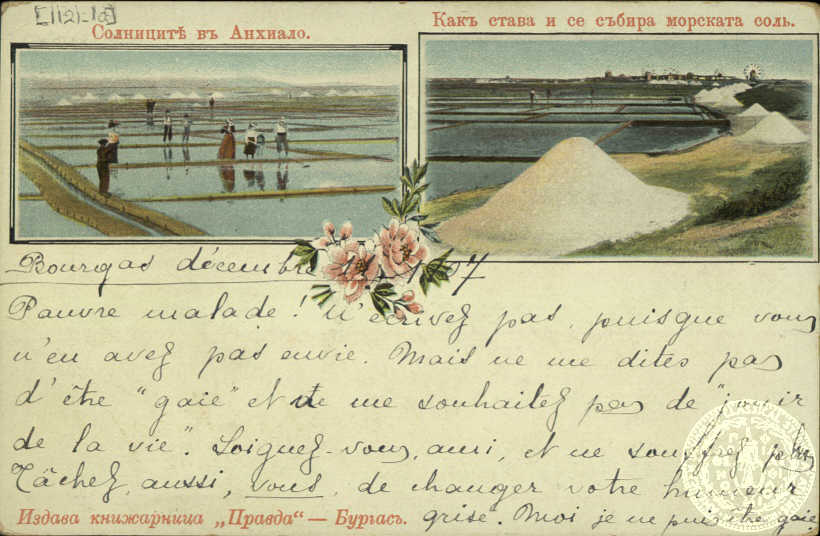 [112)-1a]
Солницитѣ въ Анхиало.
Какъ става и се събира морската соль.
Bourgas décembre 07
Pauvre malade! N'écrivez pas, puisque vous
n'en avez pas envie. Mais ne me dites pas
d'être "gaie" et ne me souhaitez pas de "jouir
de la vie". Soignez-vous, ami, et ne souffrez plus
Tâchez, aussi, vous, de changer votre humeur
grise. Moi je ne puis être gaie
Издава книжарница „Правда“ — Бургасъ.